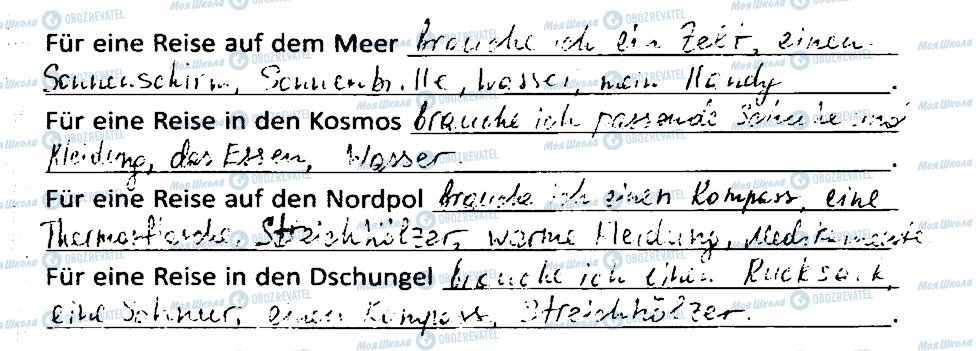 Für eine Reise auf dem Meer brauche ich ein Zelt, einen
Sonnenschirm, Sonnenbrille, Wasser, mein Handy.
Für eine Reise in den Kosmos brauche ich passende Schuhe und
Kleidung, das Essen, Wasser.
Für eine Reise auf den Nordpol brauche ich einen Kompass, eine
Thermosflasche, Streichhölzer, warme Kleidung, Medikamente
Für eine Reise in den Dschungel brauche ich einen Rucksack,
eine Schnur, einen Kompass, Streichhölzer.